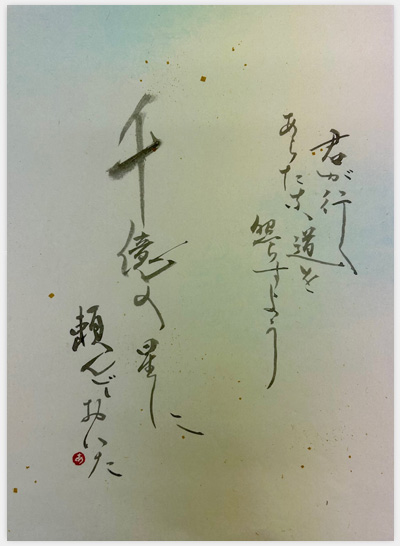 君が行く
あらたな道を
照らすよう
千億の星に
頼んでおいた
あ